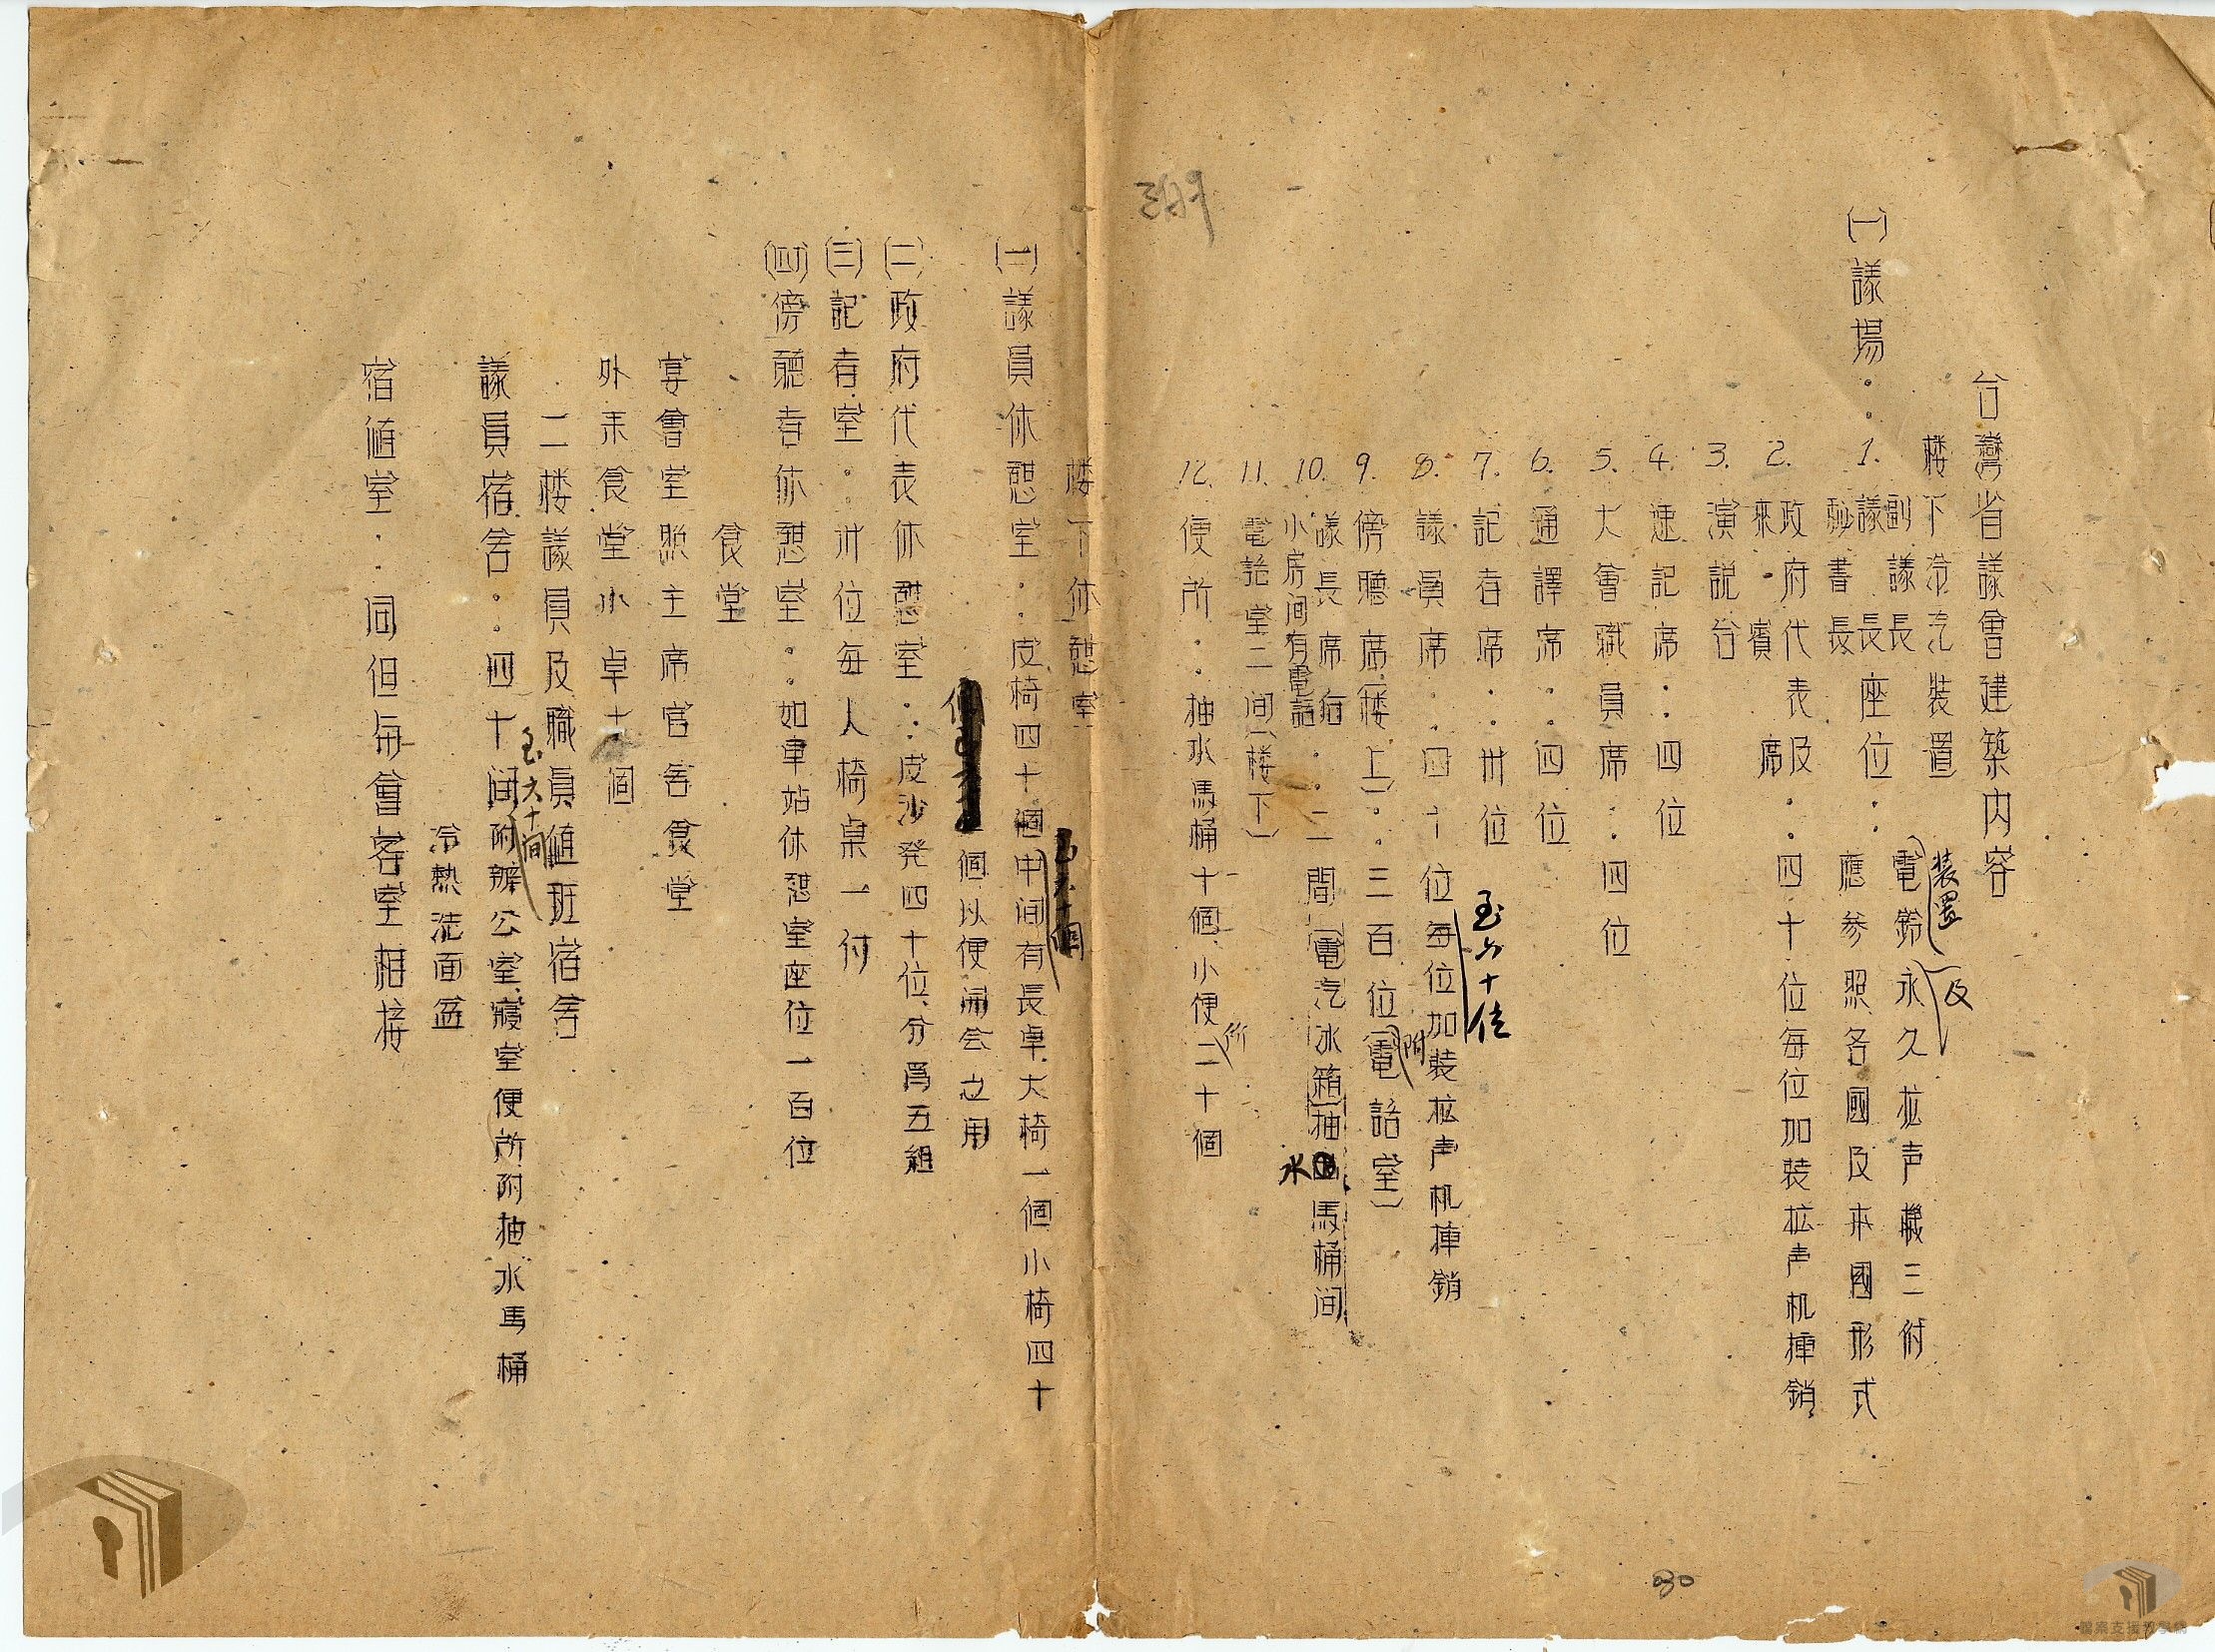 台灣省議會建築內容
樓下冷汽装置 (電鈴装置及永久拡声機三付
(一)議場:
1. 副議長 議長 秘書長 座位: 應参照各國及本國形式
2. 政府代表及來賓席:四十位每位加装拡声机挿銷
3. 演説台
4. 速記席:四位
5. 大會職員席:四位
6. 通譯席:四位
7. 記者席:卅位
8. 議員席:四十位至六十位每位加装拡声机挿銷
9. 傍聽席(楼上):三百位(附電話室)
10. 議長席后:二間(電汽冰箱抽水馬桶间
小房间有電話
11. 電話室二间(楼下)
12. 便所:抽水馬桶十個、小便所二十個
楼下休憩室
(一)議員休憩室:皮椅四十個至六十個中间有長卓大椅一個小椅四十
個以便開会之用
(二)政府代表休憩室:皮沙発四十位、分爲五組
(三)記者室:卅位每人椅桌一付
(四)傍聽者休憩室:如車站休憩室座位一百位
食堂
宴會室照主席官舍食堂
外来食堂小卓十個
二楼議員及職員值班宿舍
議員宿舍:四十间至六十間附辦公室、寢室便所附抽水馬桶
冷熱洗面盆
宿值室:同但每會客室相接
附
80
檔案支援教學網